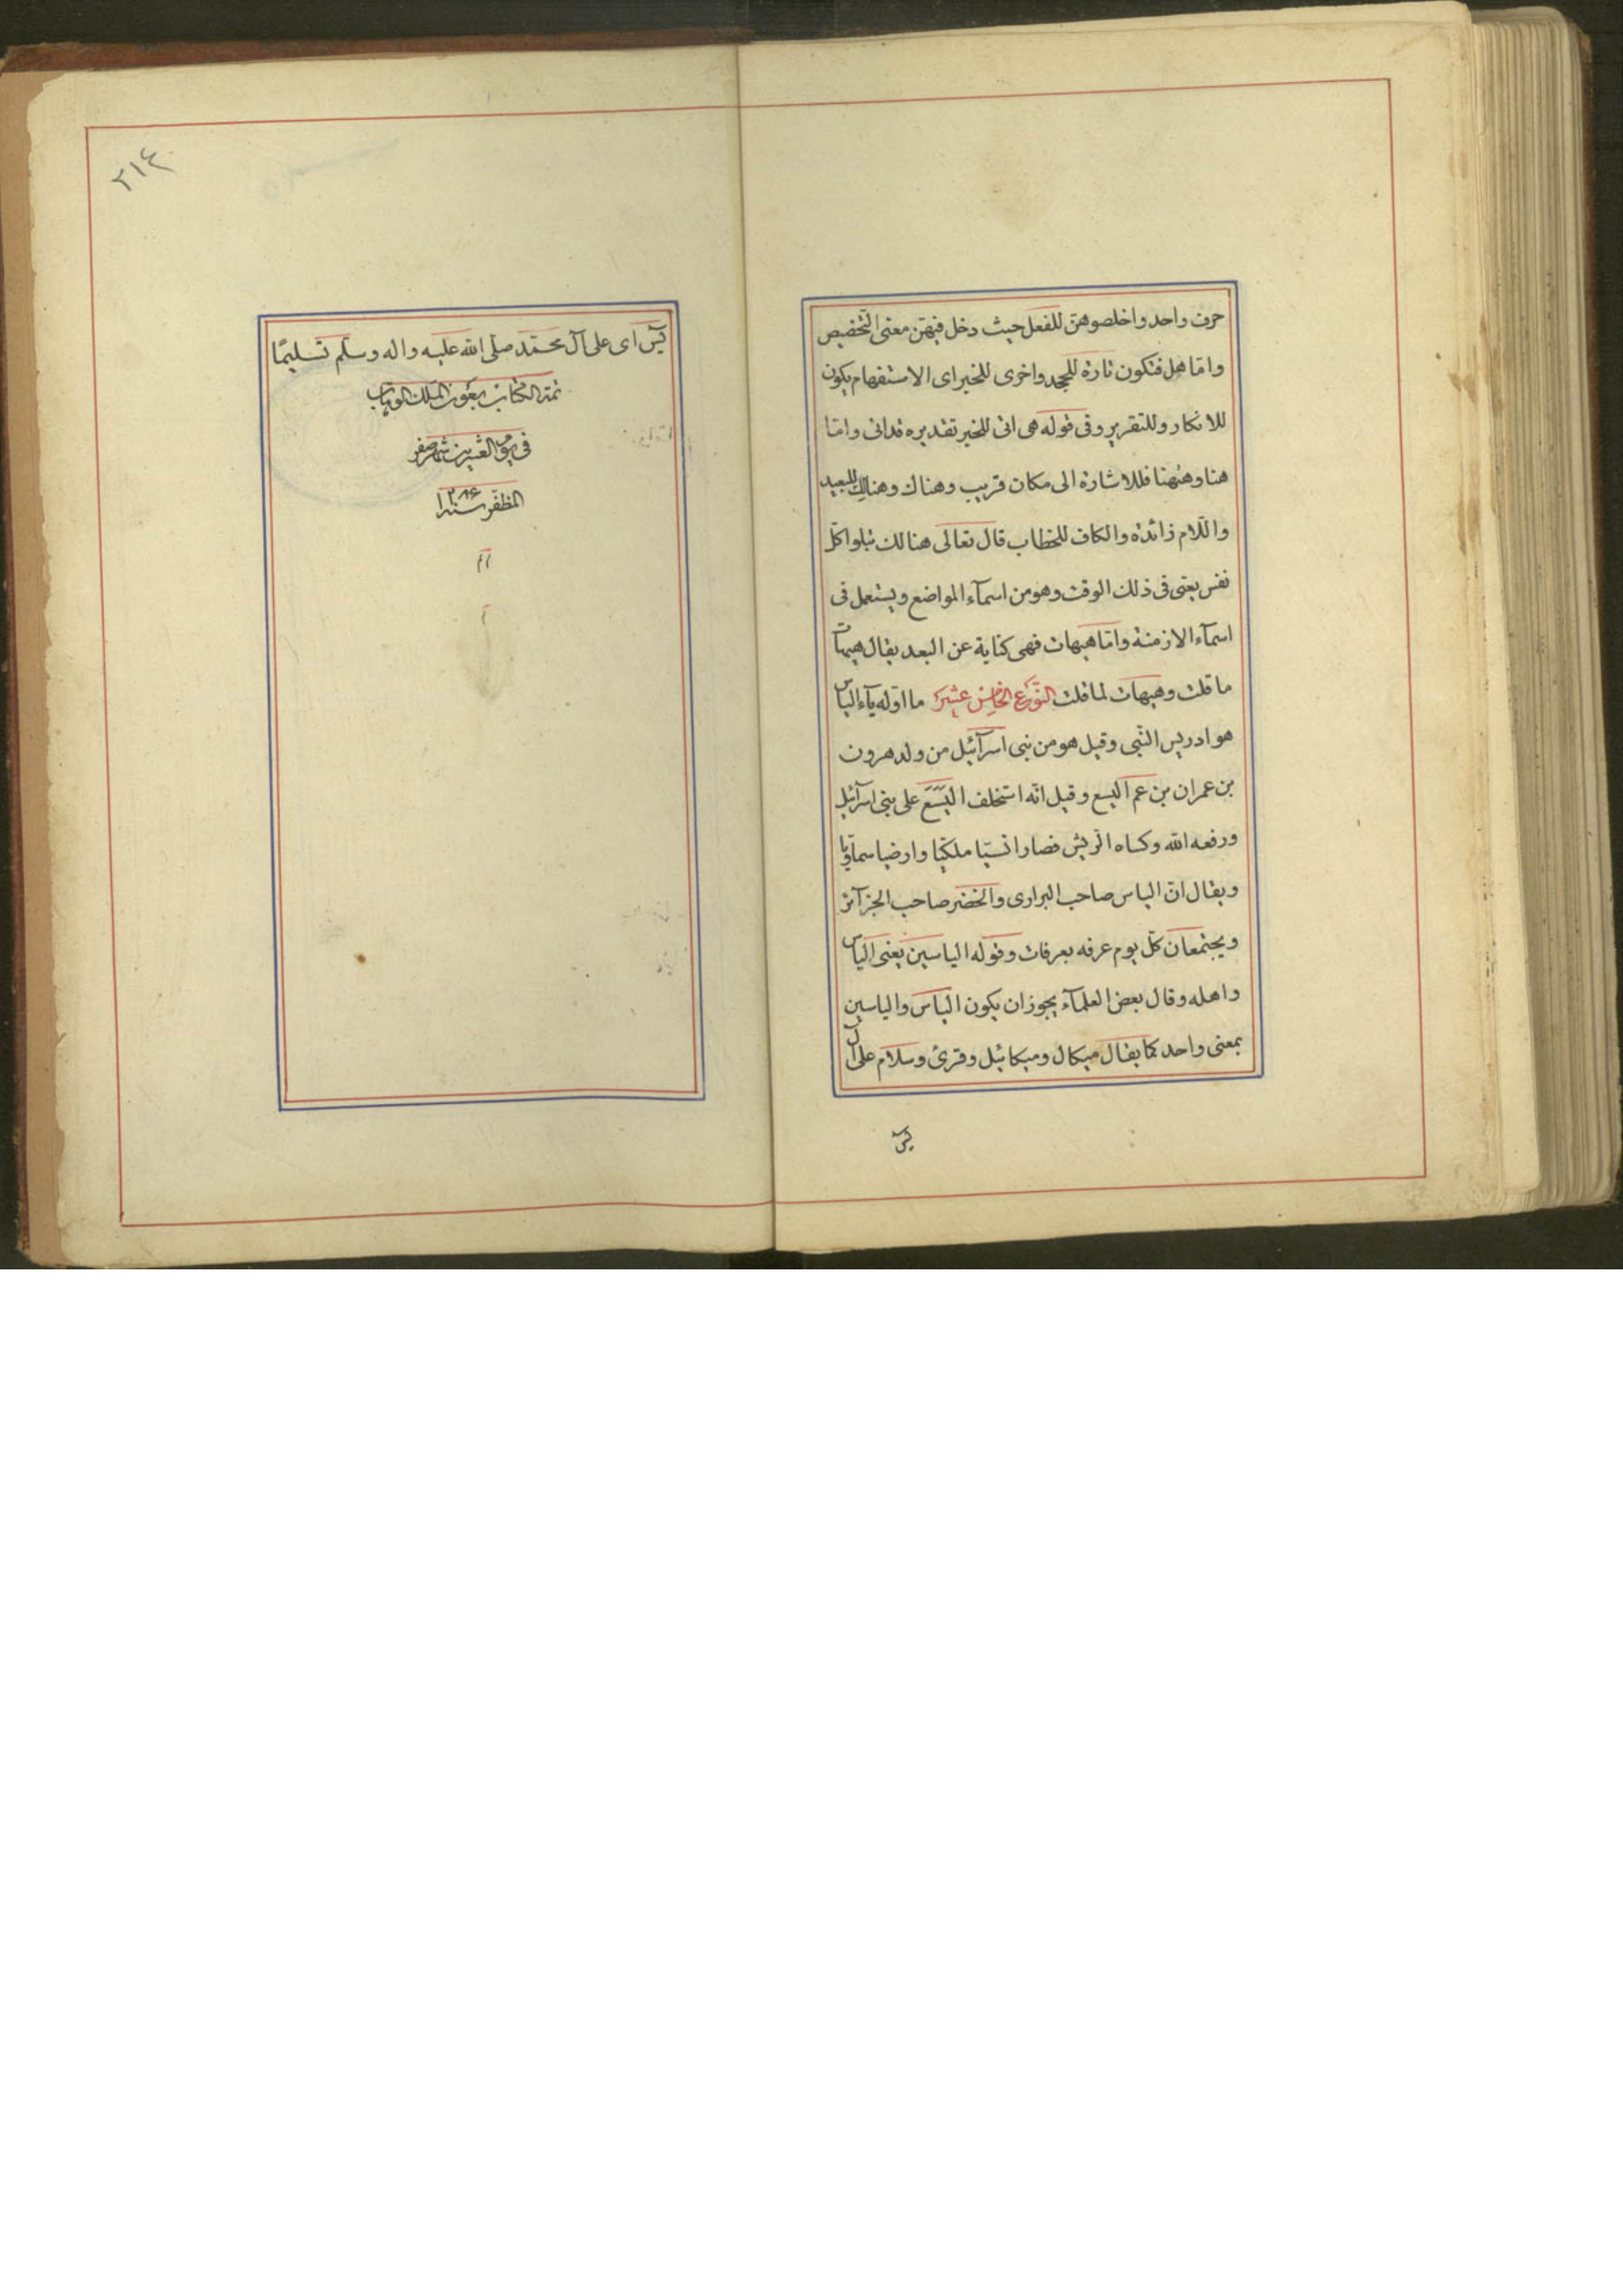 حرف واحد واخلصوهنّ للفعل حيث دخل فيهنّ معنى التخضيص
وامّا هل فتكون تارة للجحد واخرى للخبر اى الاستفهام يكون
للانكار وللتقرير وفى قوله هى اتى للخبر تقديره قداتى وامّا
هنا وههنا فللاشارة الى مكان قريب وهناك وهنالك للبعيد
واللّام زائدة والكاف للخطاب قال تعالى هنالك تبلوا كلّ
نفس يعنى فى ذلك الوقت وهو من اسمآء المواضع ويستعمل فى
اسمآء الازمنة وامّا هيهات فهى كناية عن البعد يقال هيهات
ما قلت وهيهات لما قلت النّوع الخامس عشر ما اوّله يآء الياس
هو ادريس النّبى وقيل هو من بنى اسرآئيل من ولد هرون
بن عمران بن عم اليسع وقيل انّه استخلف اليَسَعَ على بنى اسرآئيل
ورفعه الله وكساه الرّيش فصار انسيّا ملكيّا وارضيا سماويّا
ويقال انّ الياس صاحب البرارى والخضر صاحب الجزآئر
ويجتمعان كلّ يوم عرفه بعرفات وقوله الياسين يعنى الياس
واهله وقال بعض العلمآء يجوز ان يكون الياس والياسين
بمعنى واحد كما يقال ميكال وميكائيل وقرئ وسلام على آل
يس
٢١٤
يس اى على آل محمّد صلّى الله عليه واله وسلّم تسليمًا
تمت الكتاب بعون الملك الوهاب
فى يوم العشرين شهر صفر
المظفّر سنة ١٢٨۶